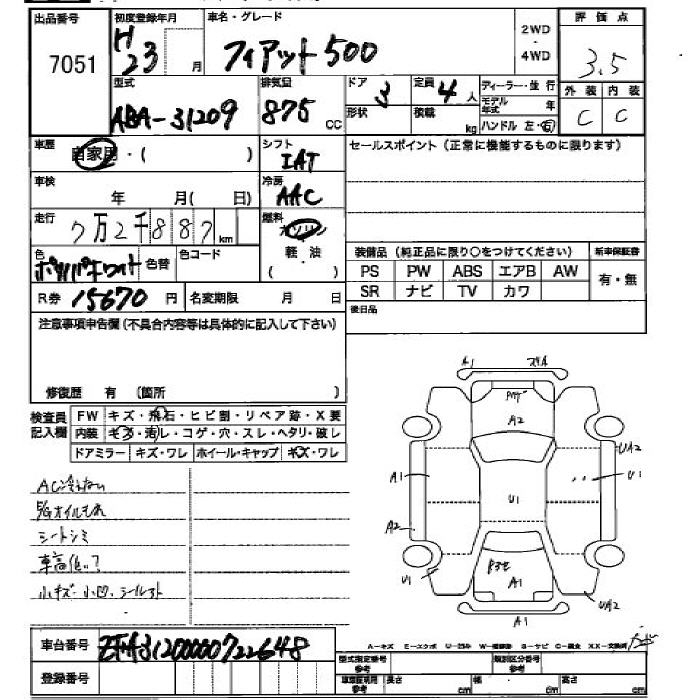 出品番号 初度登録年月 車名・グレード 2WD・4WD 評価点
7051 H23 月 フィアット500 3.5
型式 排気量 ドア 3 定員 4人 ディーラー・並行 外装 内装
ABA-31209 875 CC 形状 積載 kg モデル年式 年 C C
ハンドル 左・右
車歴 自家用・( ) シフト IAT セールスポイント(正常に機能するものに限ります)
車検 年 月( 日) 冷房 AAC
走行 7万2千887km 燃料 ガソリン
軽・油
( )
色 色替 色コード
装備品(純正品に限り○をつけてください) 新車保証書
PS PW ABS エアB AW 有・無
SR ナビ TV カワ
R券 15670円 名変期限 月 日 後日品
注意事項申告欄(不具合内容等は具体的に記入して下さい)
修復歴 有 (箇所 )
検査員記入欄 FW キズ・飛石・ヒビ割・リペア跡・X要
内装 キズ・汚レ・コゲ・穴・スレ・ヘタリ・破レ
ドアミラー キズ・ワレ ホイール・キャップ キズ・ワレ
A1
A2
UA2
A1 U1 U1
A2
U1 A1 UA2
A1
AC冷えない
シートシミ
車高低い?
車台番号 ZFA31200000722648
登録番号
型式指定番号 参考 類別区分番号 参考
車体証明用 参考 長さ cm 幅 cm 高さ cm